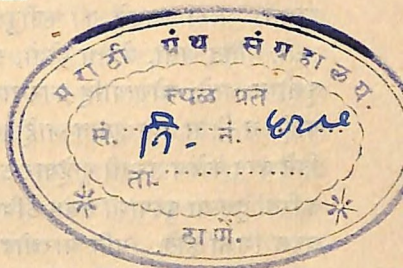 मराठी ग्रंथ संग्रहालय.
स्थळ प्रत
सं. नि- नं.
ता. ................
ठाणें.